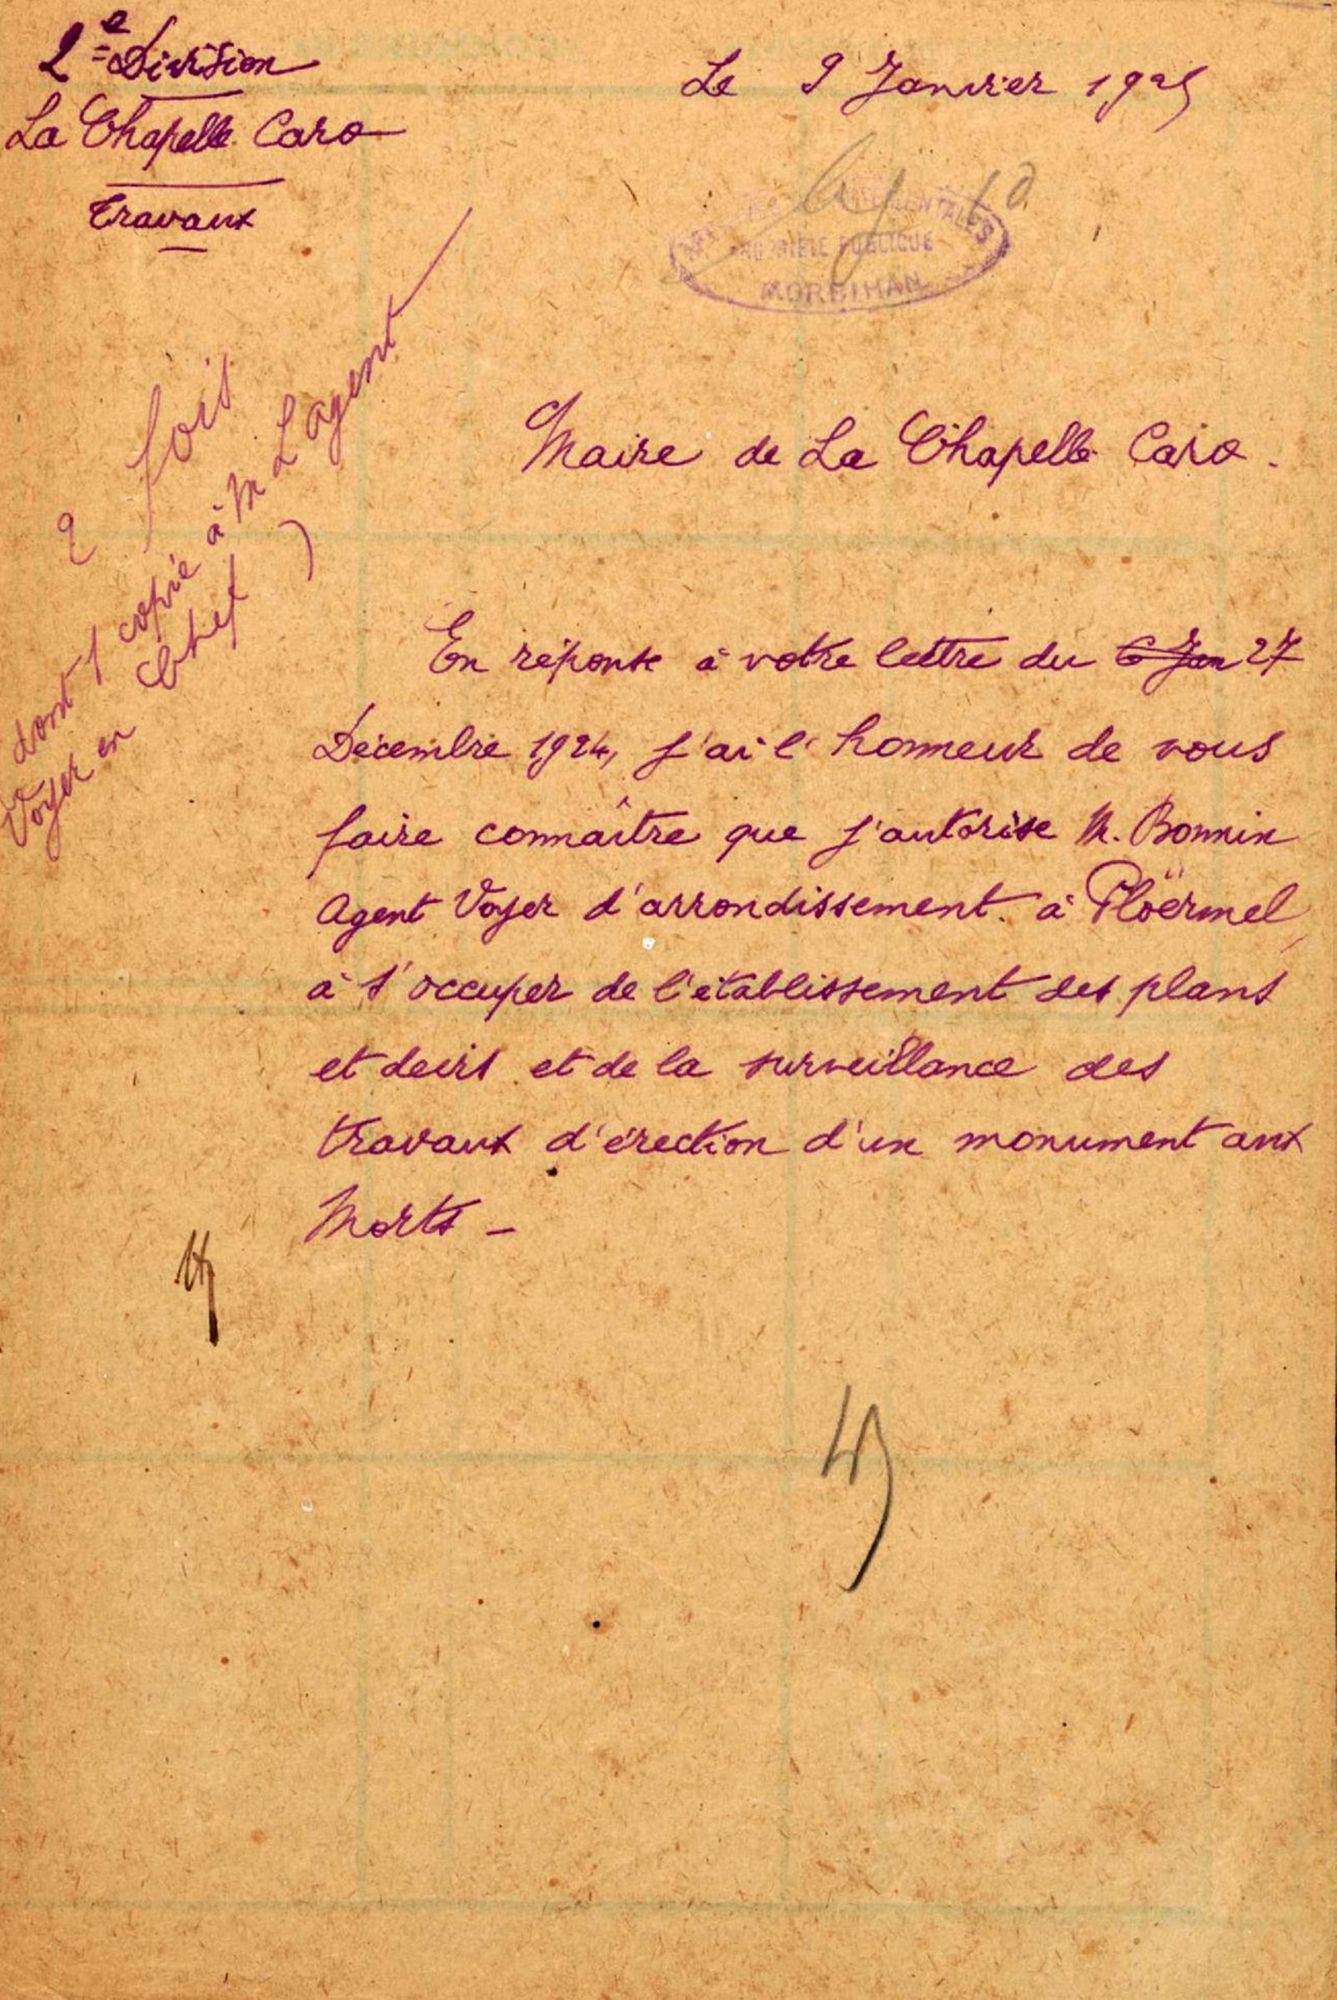 2e Division
La Chapelle Caro
Travaux
Le 9 Janvier 1925
ARCHIVES DÉPARTEMENTALES
PROPRIÉTÉ PUBLIQUE
MORBIHAN
2 fois
dont 1 copie à M L'agent
Voyer en Chef )
Maire de La Chapelle Caro.
En réponse à votre lettre du 6 Jan 27
Décembre 1924, j'ai l'honneur de vous
faire connaître que j'autorise M. Bonnin
Agent Voyer d'arrondissement à Ploërmel,
à s'occuper de l'établissement des plans
et devis et de la surveillance des
travaux d'érection d'un monument aux
Morts -